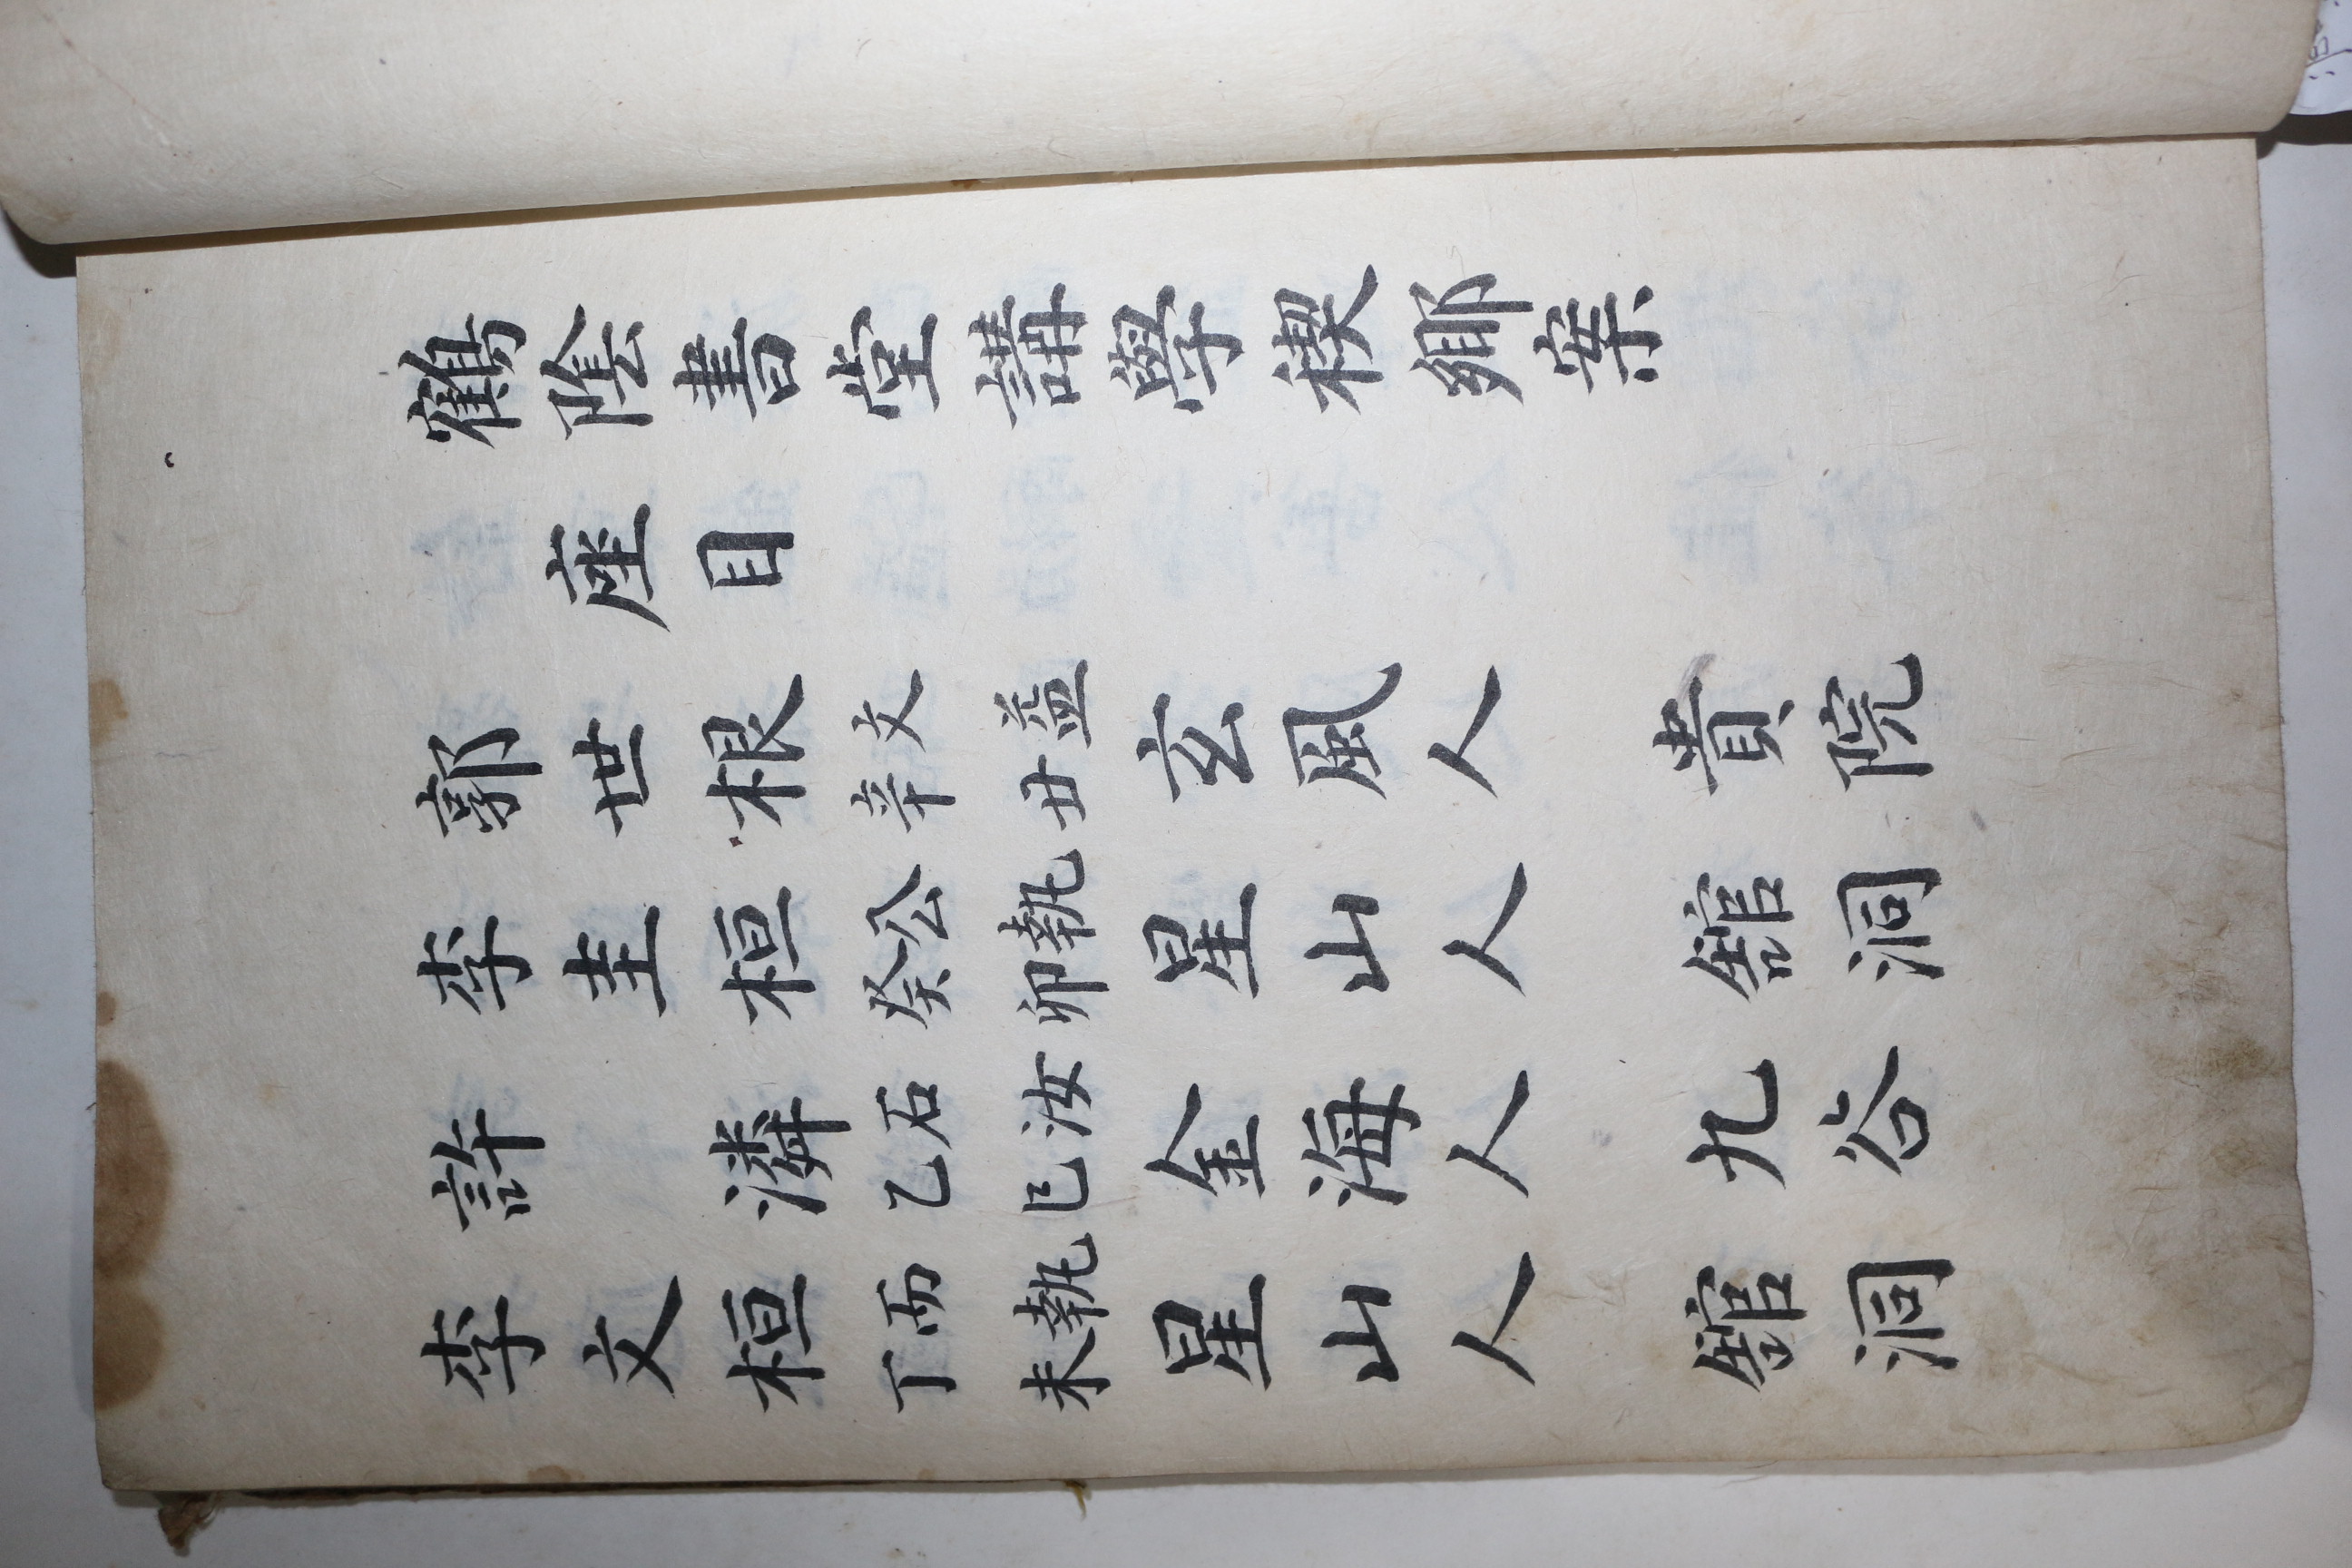 鶴陰書堂講學稧鄉案
座目
郭世根 文益 辛丑 玄風人 貴院
李圭桓 公執 癸卯 星山人 舘洞
許潾 石汝 乙巳 金海人 九谷
李文桓 而執 丁未 星山人 舘洞